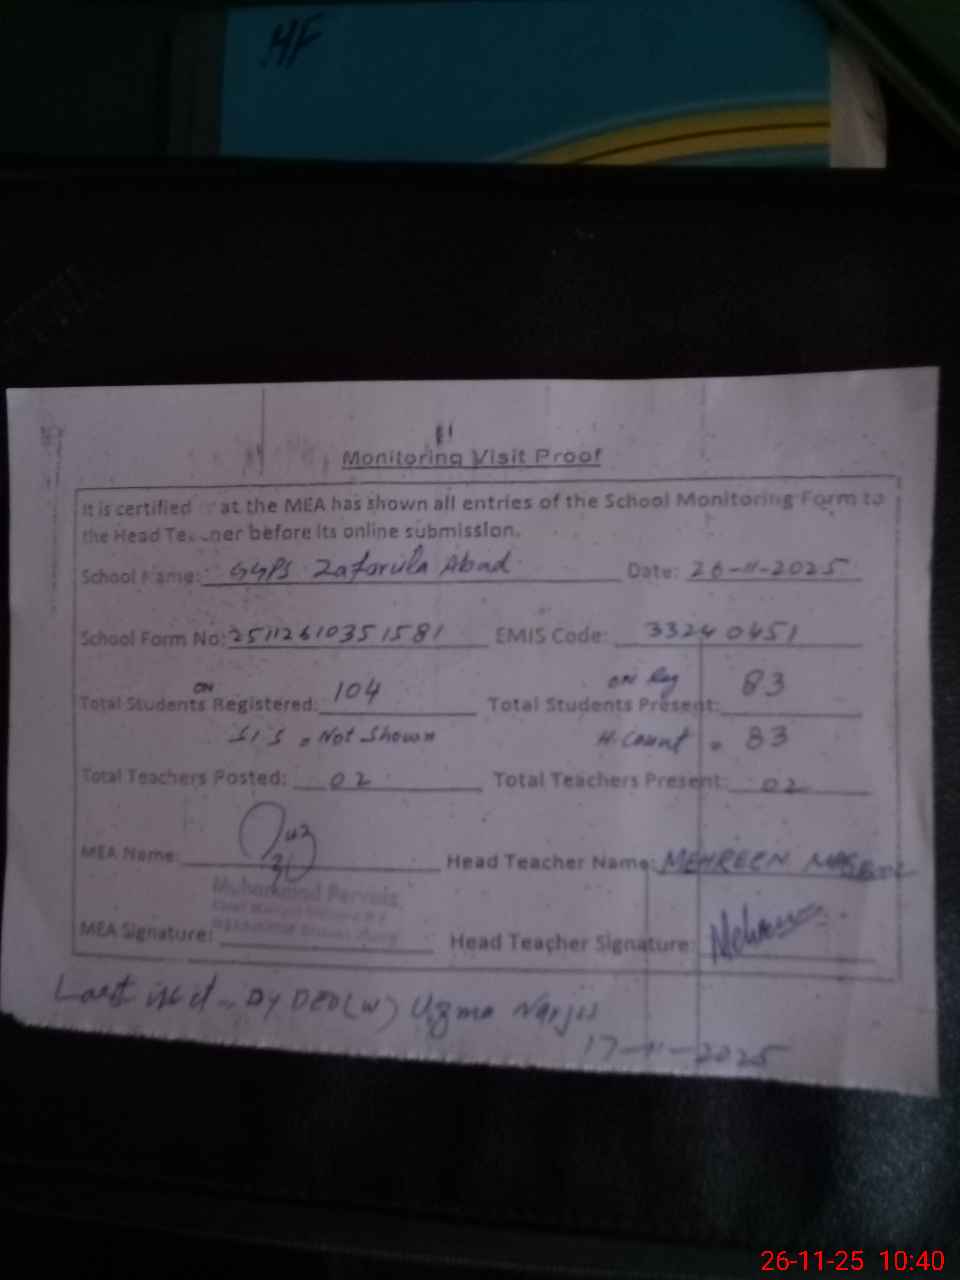 HF
Monitoring Visit Proof
It is certified at the MEA has shown all entries of the School Monitoring Form to
the Head before its online submission.
School Name: GGPS Zafarula Abad Date: 26-11-2025
School Form No: 2511261035 1581 EMIS Code: 33240451
Total Students ON Registered: 104 Total Students Present: ON Reg 83
S.I.S = Not Shown H-Count = 83
Total Teachers Posted: 02 Total Teachers Present: 02
MEA Name: Head Teacher Name: MEHREEN
Muhammad Pervaiz
MEA Signature: Head Teacher Signature:
Last DY DEO(W) Uzma Narjis
17-11-2025
26-11-25 10:40